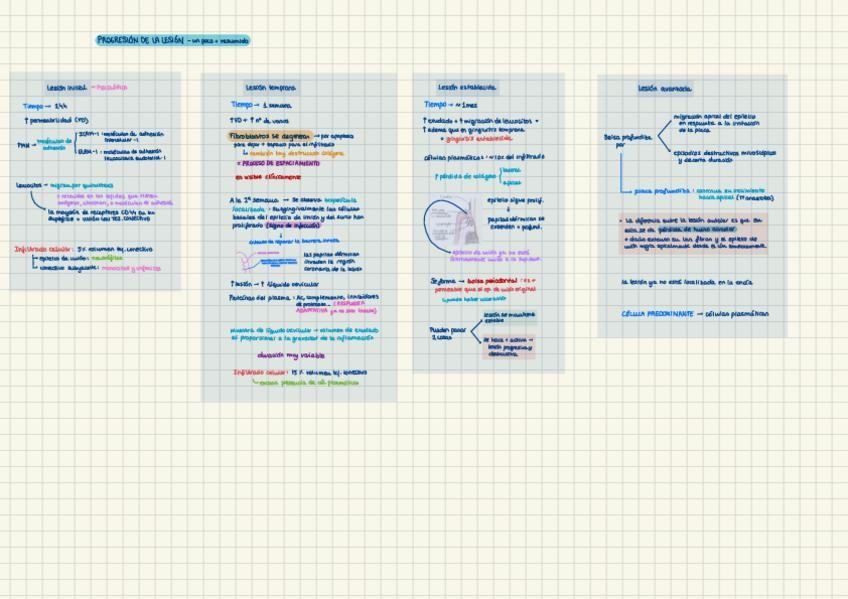 PROGRESIÓN DE LA LESIÓN - un poco + resumido
Lesión inicial
Tiempo → 24h
↑ permeabilidad
PMN → moléculas de adhesión
ICAM-1: moléculas de adhesión
ELAM-1: moléculas de adhesión
Leucocitos → migran por quimiotaxis
la mayoría de receptores CD44 en su
Infiltrado celular: 5% volumen tej. conectivo
epitelio de unión: neutrófilos
conectivo subyacente:
Lesión temprana
Tiempo → 1 semana
↑ nº de vasos
Fibroblastos se degeneran → por apoptosis
para dejar + espacio para el infiltrado
también hay destrucción colágeno
= PROCESO DE ESPACIAMIENTO
es visible clínicamente
A la 2ª semana → se observa
localizada: subgingivalmente las células
basales del epitelio de unión y del surco han
proliferado (signo de infección)
intento de reparar la barrera
las papilas dérmicas
invaden la región
coronaria de la lesión
↑ lesión → ↑ líquido crevicular
Proteínas del plasma: Ac, complemento, inhibidores
de proteasas
ADAPTATIVA
muestra de líquido crevicular → volumen de exudado
es proporcional a la gravedad de la inflamación
duración muy variable
Infiltrado celular: 15% volumen tej. conectivo
escasa presencia de cél. plasmáticas
Lesión establecida
Tiempo → ~ 1 mes
↑ exudado + ↑ migración de leucocitos +
↑ edema que en gingivitis temprana
= gingivitis establecida
células plasmáticas: del infiltrado
↑ pérdida de colágeno
lateral
apical
epitelio sigue prolif.
↓
papilas dérmicas se
extienden + profund.
epitelio de unión ya no está
íntimamente unido a la superf.
Se forma → bolsa periodontal: es +
permeable que el ep de unión original
puede haber ulceración
Pueden pasar
2 cosas
lesión se mantiene
estable
se hace + activa →
lesión progresiva y
destructiva
Lesión avanzada
Bolsa profundiza
por
migración apical del epitelio
en respuesta a la irritación
de la placa
episodios destructivos microscópicos
y de corta duración
placa profundiza: continúa su crecimiento
hacia apical
• la diferencia entre la lesión anterior es que en
esta se da pérdida de hueso alveolar
la lesión ya no está localizada en la encía
CÉLULA PREDOMINANTE → células plasmáticas